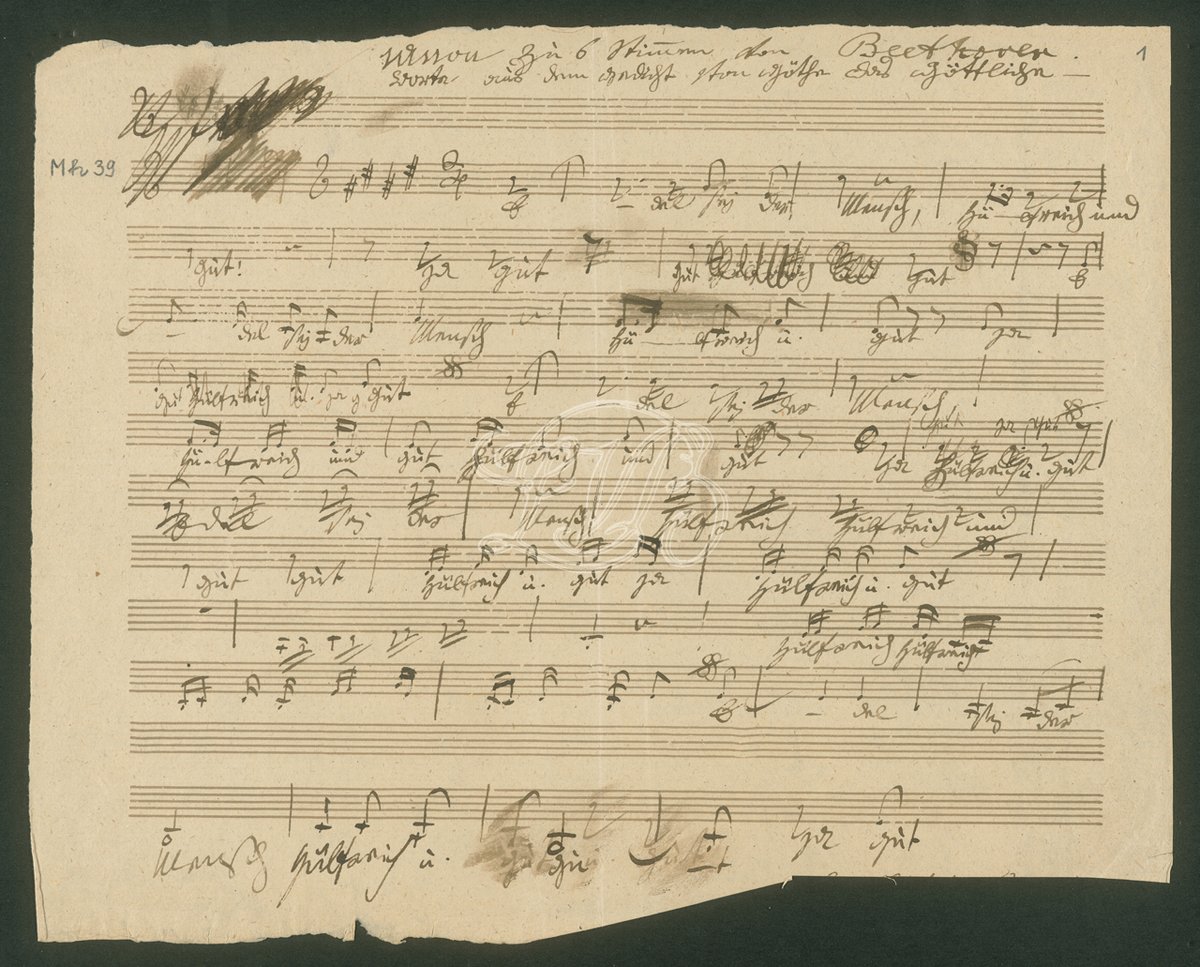 Canon zu 6 Stimmen von Beethoven. 1
Worte aus dem Gedicht von Göthe das Göttliche —
Mh 39
E – del sey der Mensch, hü – lfreich und
gut! ja gut gut gut E
– del sey der Mensch hü – lfreich u. gut ja
gut hülfreich u. ja gut E del sey der Mensch
gut ja gut
hü-lfreich und gut hülfreich und gut ja hülfreich u. gut
E del sey der Mensch hülfreich hülfreich und
gut gut hülfreich u. gut ja hülfreich u. gut
hülfreich hülfreich
E – del sey der
Mensch hülfreich u. gut ja gut